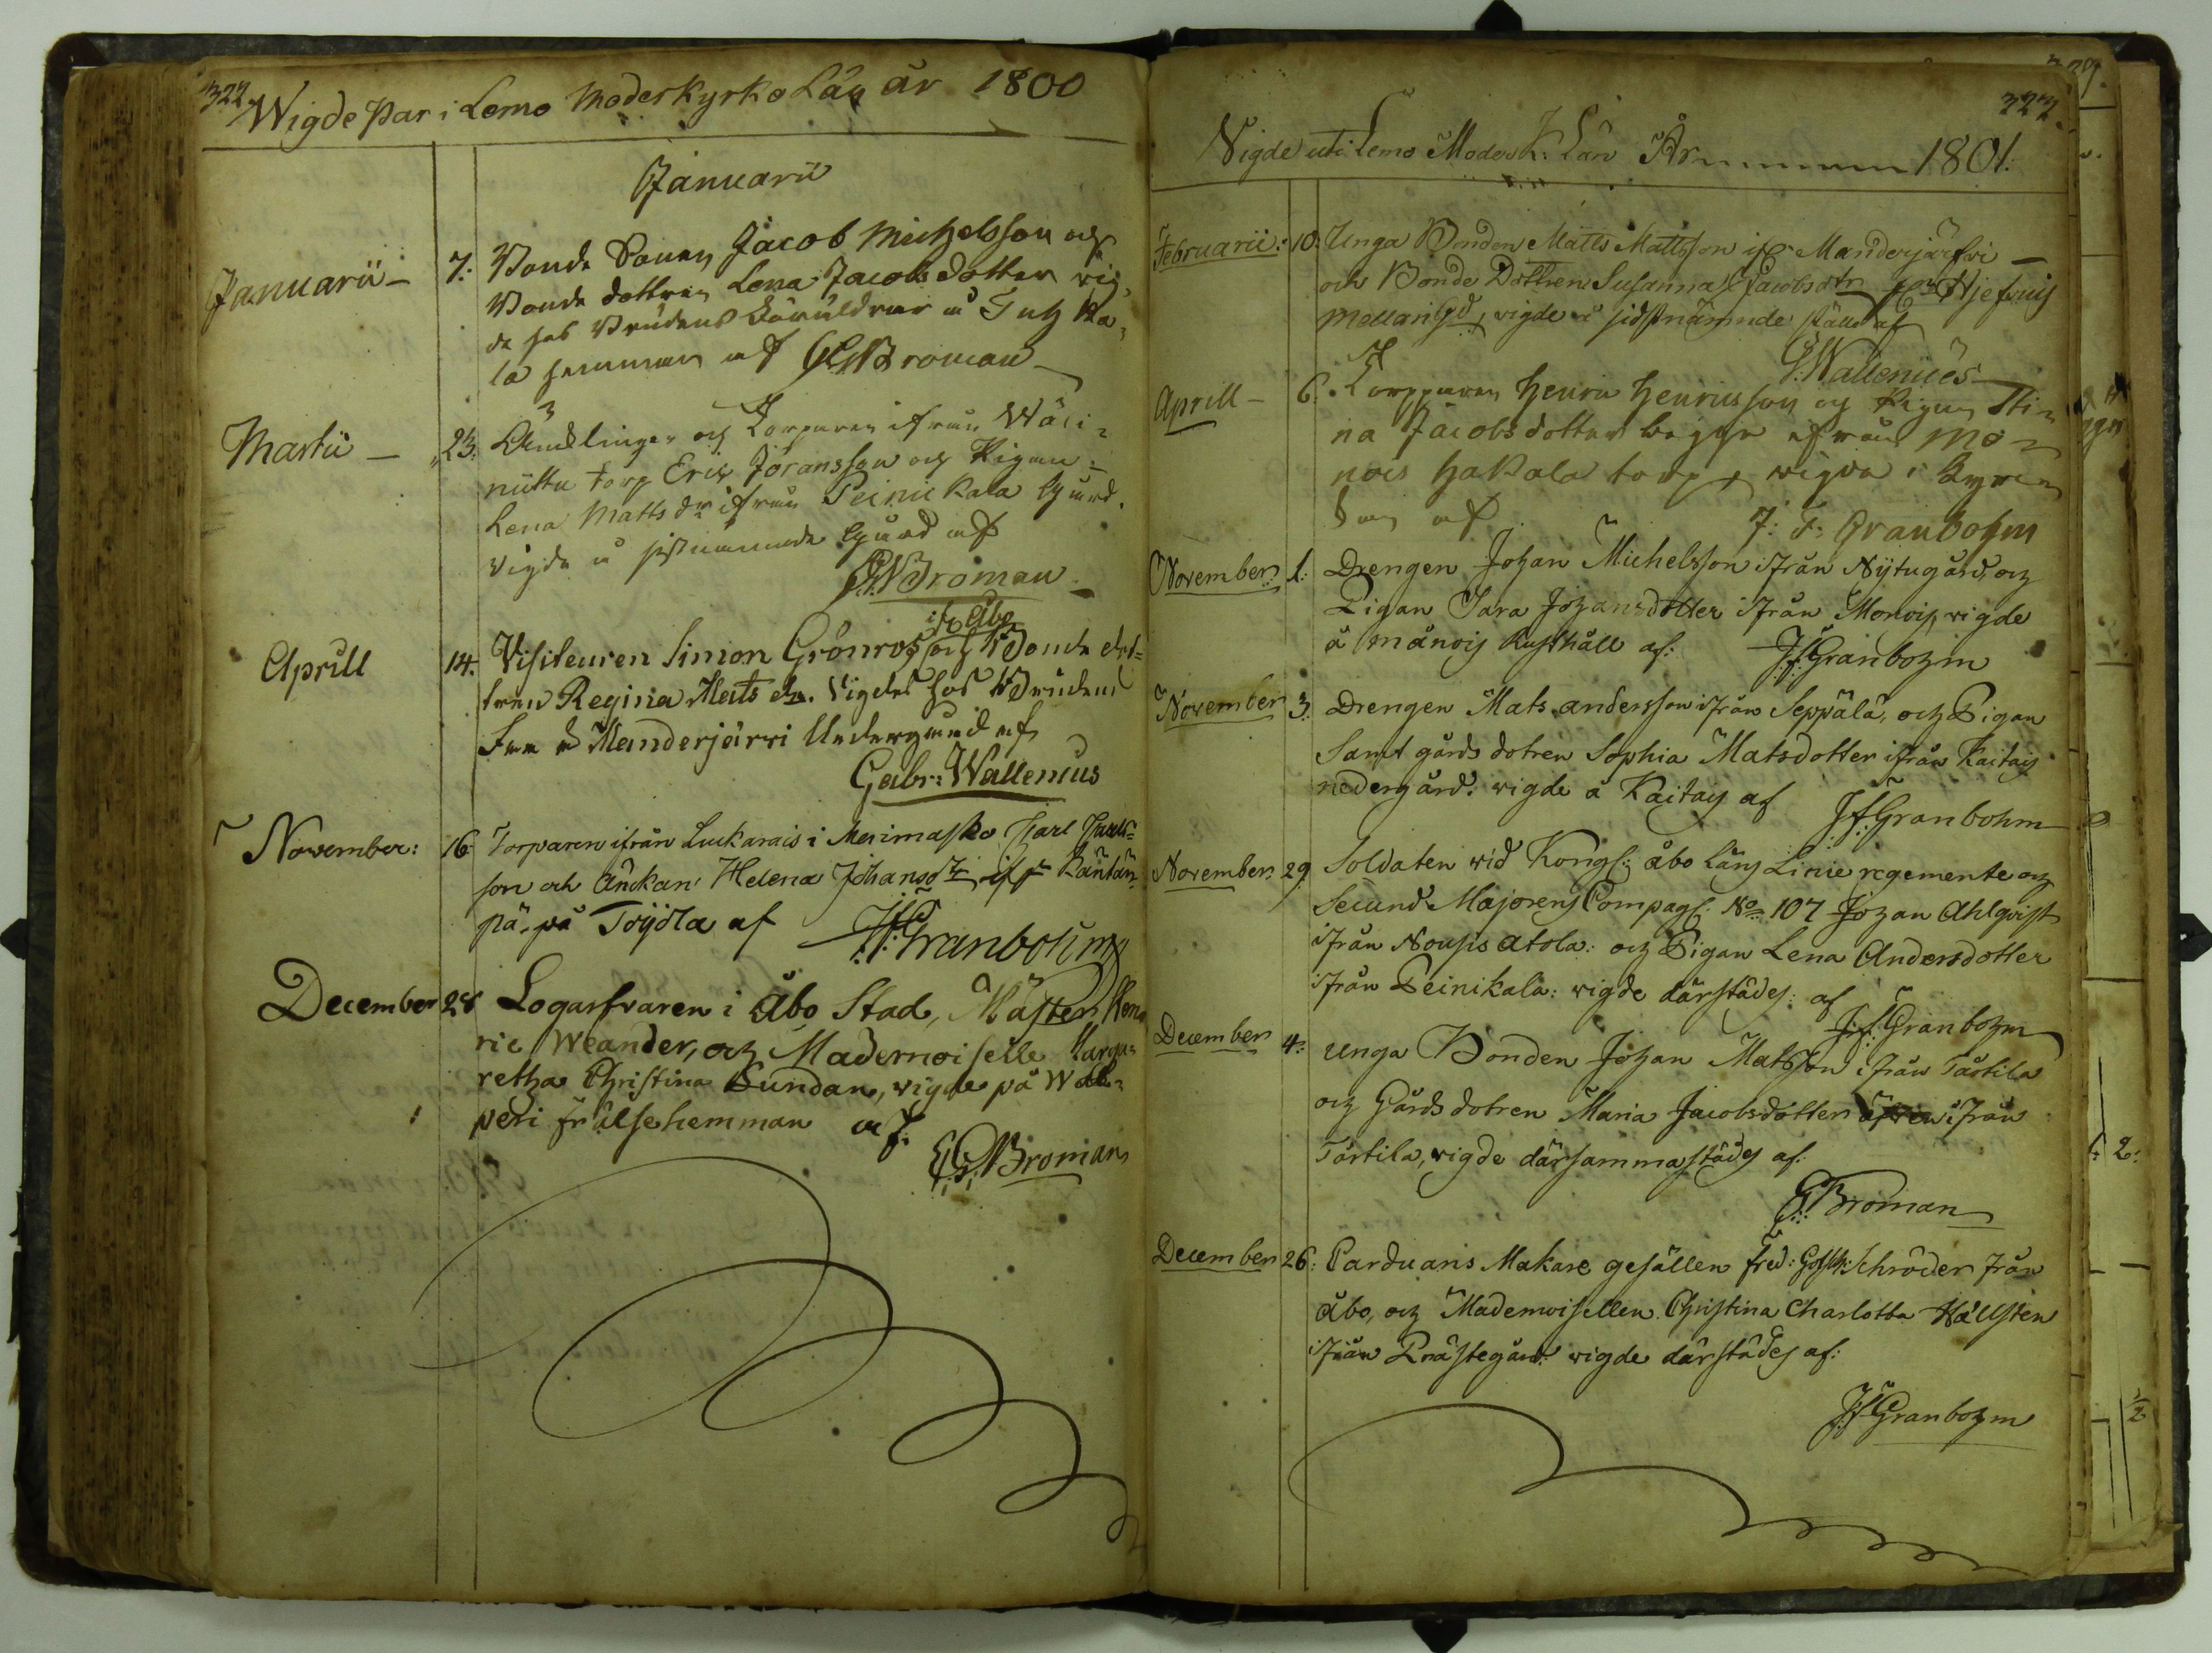 322.
Wigde Par i Lemo Moderkyrko Län år 1800
Januarii
Januarii – 7. Bonde Sonen Jacob Michelsson och
Bonde dottren Lena Jacobsdotter vig-
de hos Brudens å
la hemman af EGBroman
Martii – 23. Enklingen och Torparen ifrån Wäli-
niittu torp Eric Jöransson och Pigan
Lena Matts dr ifrån Peinikala gård.
vigde å sistnämnde gård af
EGBroman
ifr. Åbo
Aprill 14. Visiteuren Simon Grönros och Bonde dot-
tren Regina Mats dr. Vigdes hos Brudens
å Manderjärvi Undergård af
Gabr: Wallenius
November: 16. Torparen ifrån Luckarais i Merimasko Carl Carls-
son och Änckan Helena Johansdr ifr. Käntän-
pä, på Tröÿdla af
J:F:Granbohm
December 28 Logarfvaren i Åbo Stad, Mäster Hen-
ric Weander, och Mademoiselle Marga-
retha Christina Sundan, vigde på Wal-
peri frälsehemman af
E:G:Broman
323.
Vigde uti Lemo Moder K: Län År 1801.
Februarii: 10. Unga Bonden Matts Mattsson ifr Manderjärfvi –
och Bonde Dottren Susanna Jacobsdtr
Mellangd, vigde å sidstnämnde ställe af
G:Wallenius
Aprill – 6. Torpparen Henric Henricsson och Pigan Sti-
na Jacobsdotter begge ifrån Mo-
nois Hakala torp, vigda i
af J: F: Granbohm
November: 1: Drengen Johan Michelsson ifrån Nÿtugård, och
Pigan Sara Johansdotter ifrån Monois, vigde
å Månois Rusthåll af: J:f:Granbohm
November 3: Drengen Mats andersson ifrån Seppälä, och Pigan
Samt gårds dotren Sophia Matsdotter ifrån Kaitais
nedergård. vigde å Kaitais af J:f:Granbohm
November: 29 Soldaten vid Kongl: åbo läns Linie regemente och
Secund Majorens Compagl: No 107 Johan Ahlqvist
ifrån Nousis Atola: och Pigan Lena Andersdotter
ifrån Peinikala: vigde därstädes: af
J:f:Granbohm
December 4: Unga Bonden Johan Matsson ifrån Tårtila
och Gårds dotren Maria Jacobsdotter även ifrån
Tårtila, vigde därsammastädes af:
EG:Broman
December 26: Carduans Makare gesällen Fred: Gosth: Schröder från
Åbo, och Mademoisellen Christina Charlotta Hällsten
ifrån Prästegård: vigde därstädes af:
J:f:Granbohm